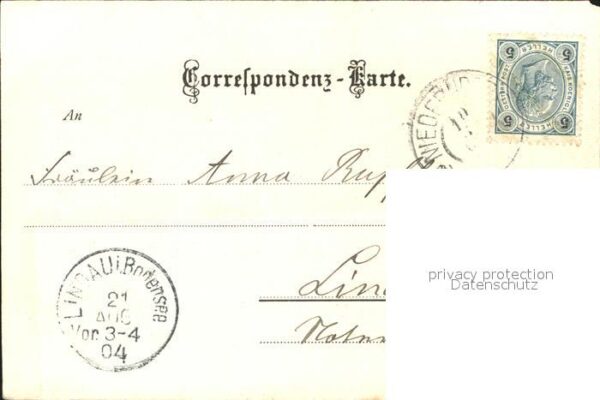 Correspondenz-Karte.
An
Fräulein Anna Rupp
Lin
LINDAU i. Bodensee
21
AUG
Vor. 3-4
04
NIEDERND
5 HELLER 5
5 HELLER 5
privacy protection
Datenschutz